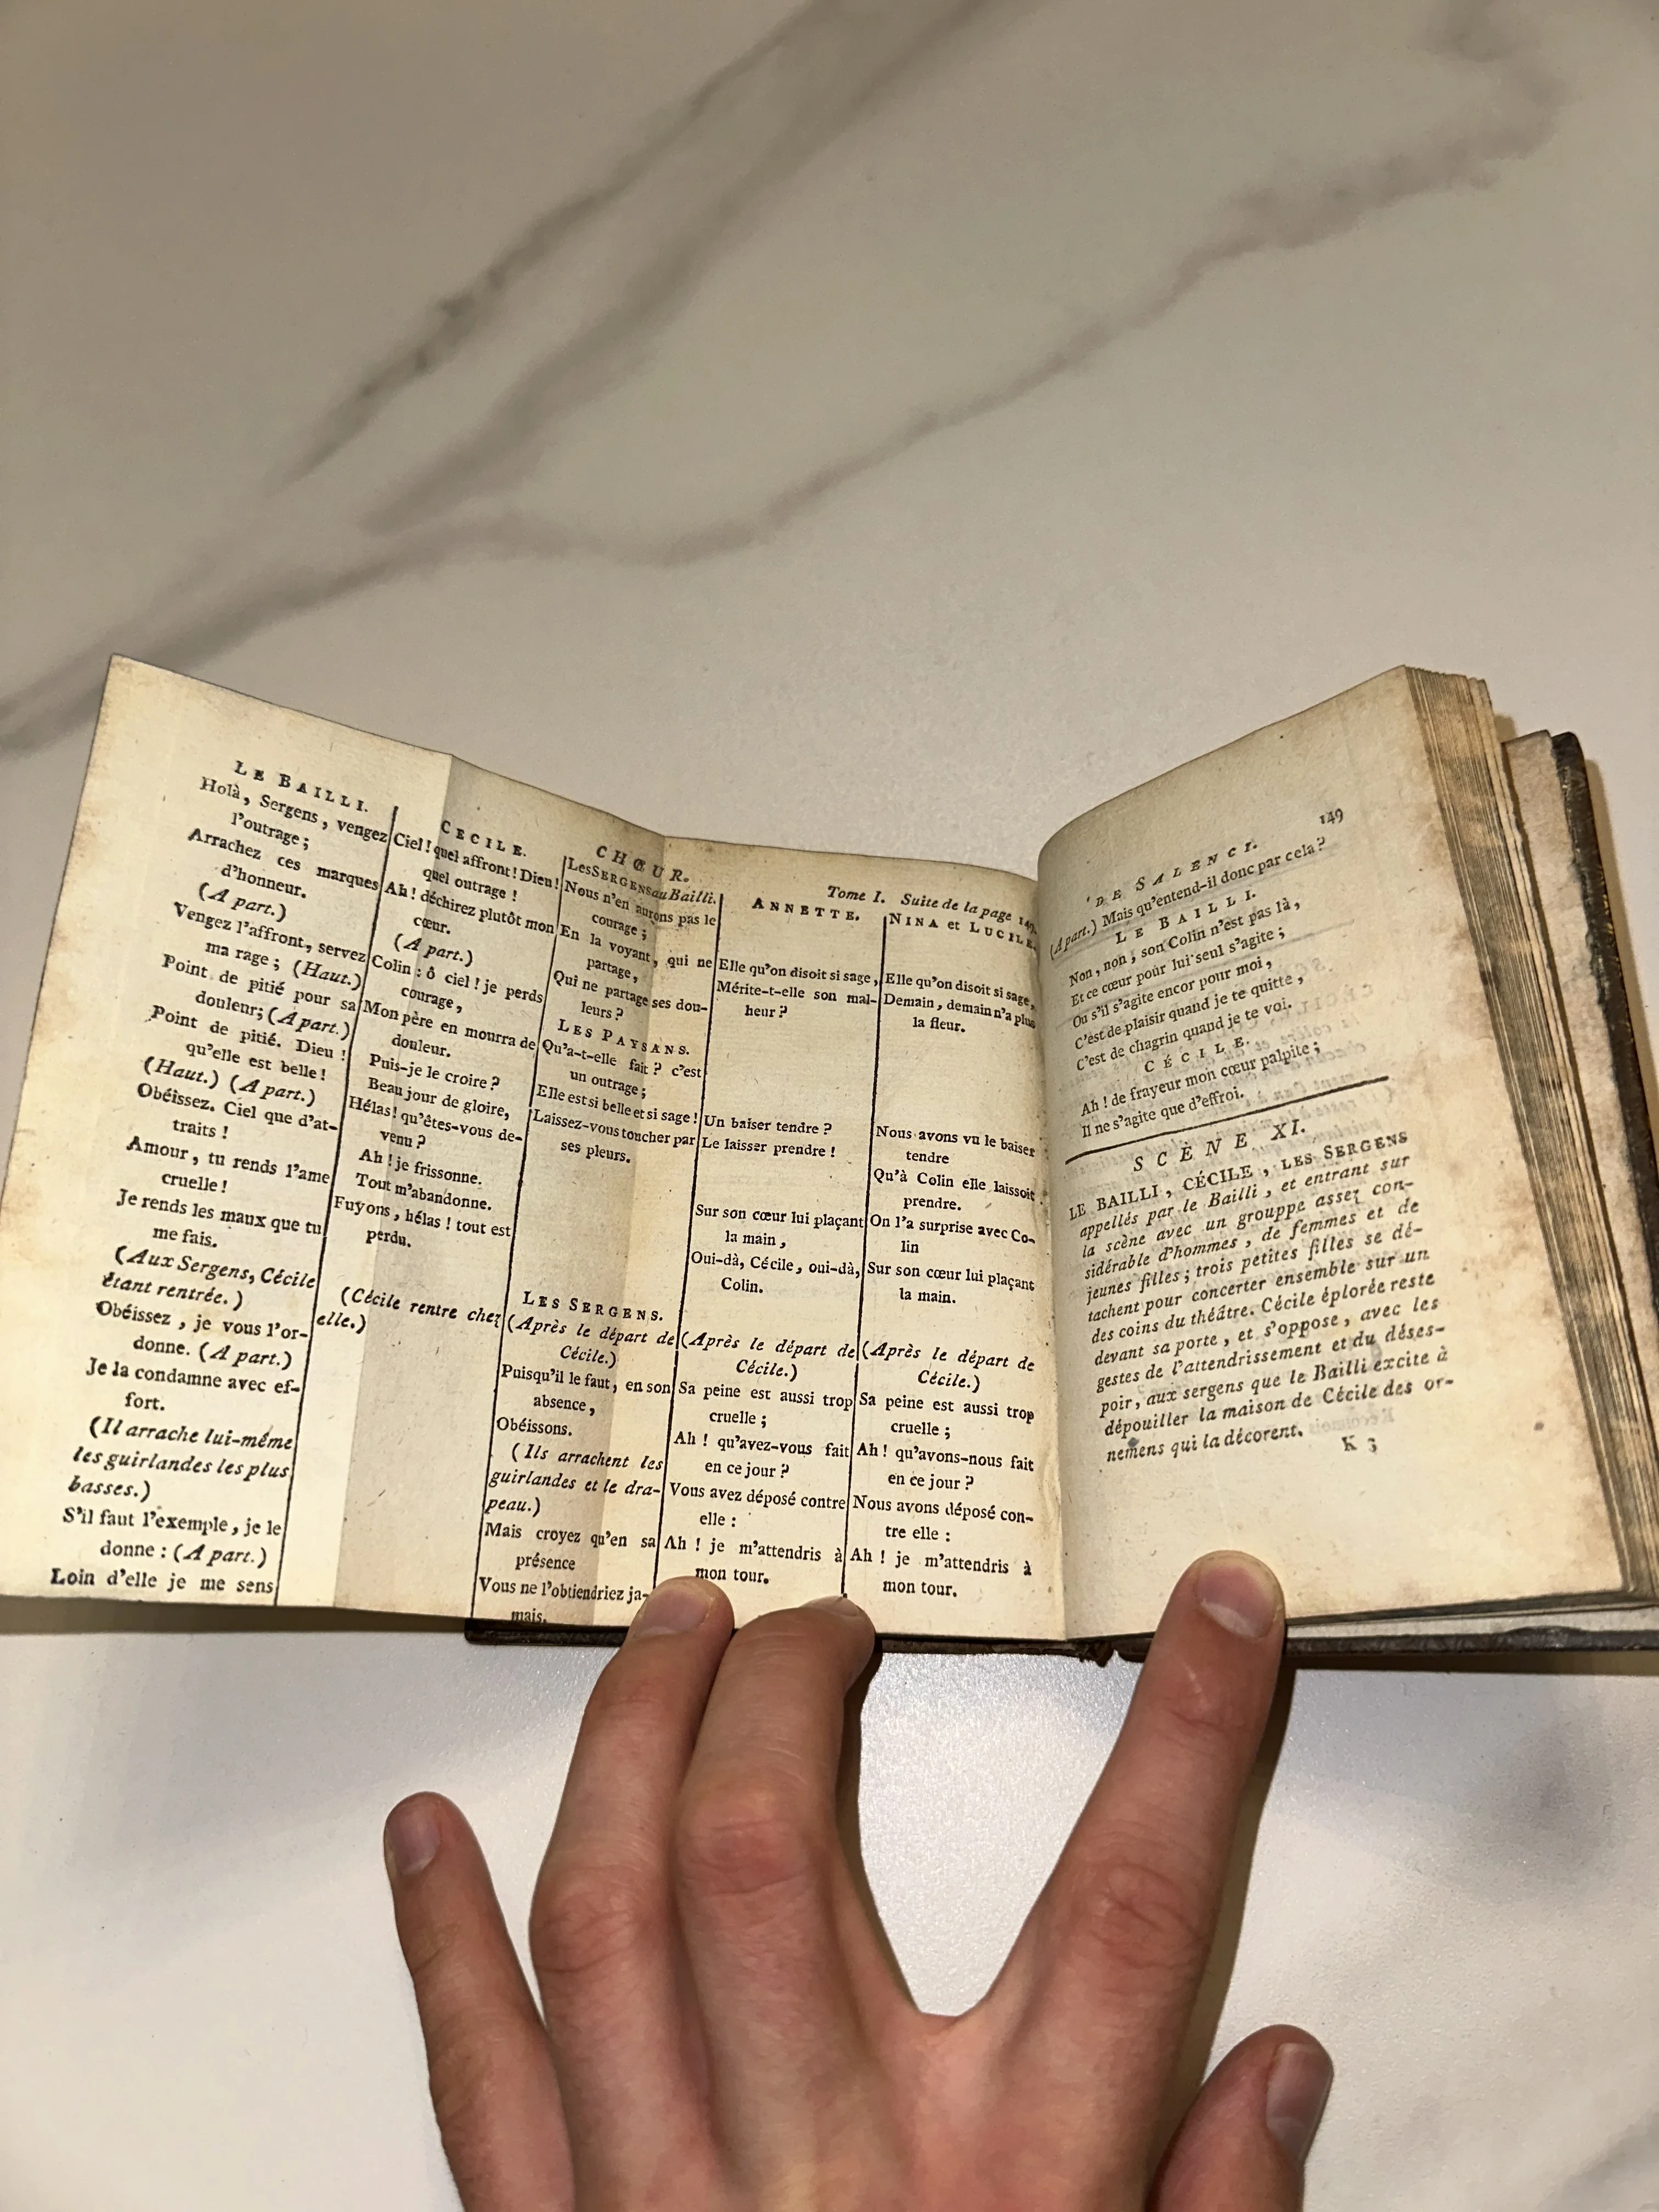 LE BAILLI.
Holà, Sergens, vengez
l'outrage;
Arrachez ces marques
d'honneur.
(A part.)
Vengez l'affront, servez
ma rage; (Haut.)
Point de pitié pour sa
douleur; (A part.)
Point de pitié. Dieu !
qu'elle est belle!
(Haut.) (A part.)
Obéissez. Ciel que d'at-
traits !
Amour, tu rends l'ame
cruelle!
Je rends les maux que tu
me fais.
(Aux Sergens, Cécile
étant rentrée.)
Obéissez, je vous l'or-
donne. (A part.)
Je la condamne avec ef-
fort.
(Il arrache lui-même
les guirlandes les plus
basses.)
S'il faut l'exemple, je le
donne : (A part.)
Loin d'elle je me sens
CECILE.
Ciel! quel affront! Dieu!
quel outrage !
Ah! déchirez plutôt mon
cœur.
(A part.)
Colin : ô ciel! je perds
courage,
Mon père en mourra de
douleur.
Puis-je le croire?
Beau jour de gloire,
Hélas! qu'êtes-vous de-
venu ?
Ah! je frissonne.
Tout m'abandonne.
Fuyons, hélas! tout est
perdu.
(Cécile rentre chez
elle.)
CHŒUR.
Les SERGENS au Bailli.
Nous n'en aurons pas le
courage;
En la voyant, qui ne
partage,
Qui ne partage ses dou-
leurs ?
LES PAYSANS.
Qu'a-t-elle fait ? c'est
un outrage;
Elle est si belle et si sage!
Laissez-vous toucher par
ses pleurs.
LES SERGENS.
(Après le départ de
Cécile.)
Puisqu'il le faut, en son
absence,
Obéissons.
(Ils arrachent les
guirlandes et le dra-
peau.)
Mais croyez qu'en sa
présence
Vous ne l'obtiendriez ja-
mais.
Tome I. Suite de la page 149.
ANNETTE.
Elle qu'on disoit si sage,
Mérite-t-elle son mal-
heur ?
Un baiser tendre ?
Le laisser prendre !
Sur son cœur lui plaçant
la main,
Oui-dà, Cécile, oui-dà,
Colin.
(Après le départ de
Cécile.)
Sa peine est aussi trop
cruelle;
Ah ! qu'avez-vous fait
en ce jour ?
Vous avez déposé contre
elle :
Ah ! je m'attendris à
mon tour.
NINA et LUCILE.
Elle qu'on disoit si sage,
Demain, demain n'a plus
la fleur.
Nous avons vu le baiser
tendre
Qu'à Colin elle laissoit
prendre.
On l'a surprise avec Co-
lin
Sur son cœur lui plaçant
la main.
(Après le départ de
Cécile.)
Sa peine est aussi trop
cruelle;
Ah! qu'avons-nous fait
en ce jour?
Nous avons déposé con-
tre elle :
Ah ! je m'attendris à
mon tour.
DE SALENCI. 149
(A part.) Mais qu'entend-il donc par cela?
LE BAILLI.
Non, non, son Colin n'est pas là,
Et ce cœur pour lui seul s'agite;
Ou s'il s'agite encor pour moi,
C'est de plaisir quand je te quitte,
C'est de chagrin quand je te voi.
CÉCILE.
Ah! de frayeur mon cœur palpite;
Il ne s'agite que d'effroi.
SCÈNE XI.
LE BAILLI, CÉCILE, LES SERGENS
appellés par le Bailli, et entrant sur
la scène avec un grouppe assez con-
sidérable d'hommes, de femmes et de
jeunes filles; trois petites filles se dé-
tachent pour concerter ensemble sur un
des coins du théâtre. Cécile éplorée reste
devant sa porte, et s'oppose, avec les
gestes de l'attendrissement et du déses-
poir, aux sergens que le Bailli excite à
dépouiller la maison de Cécile des or-
nemens qui la décorent.
K 3